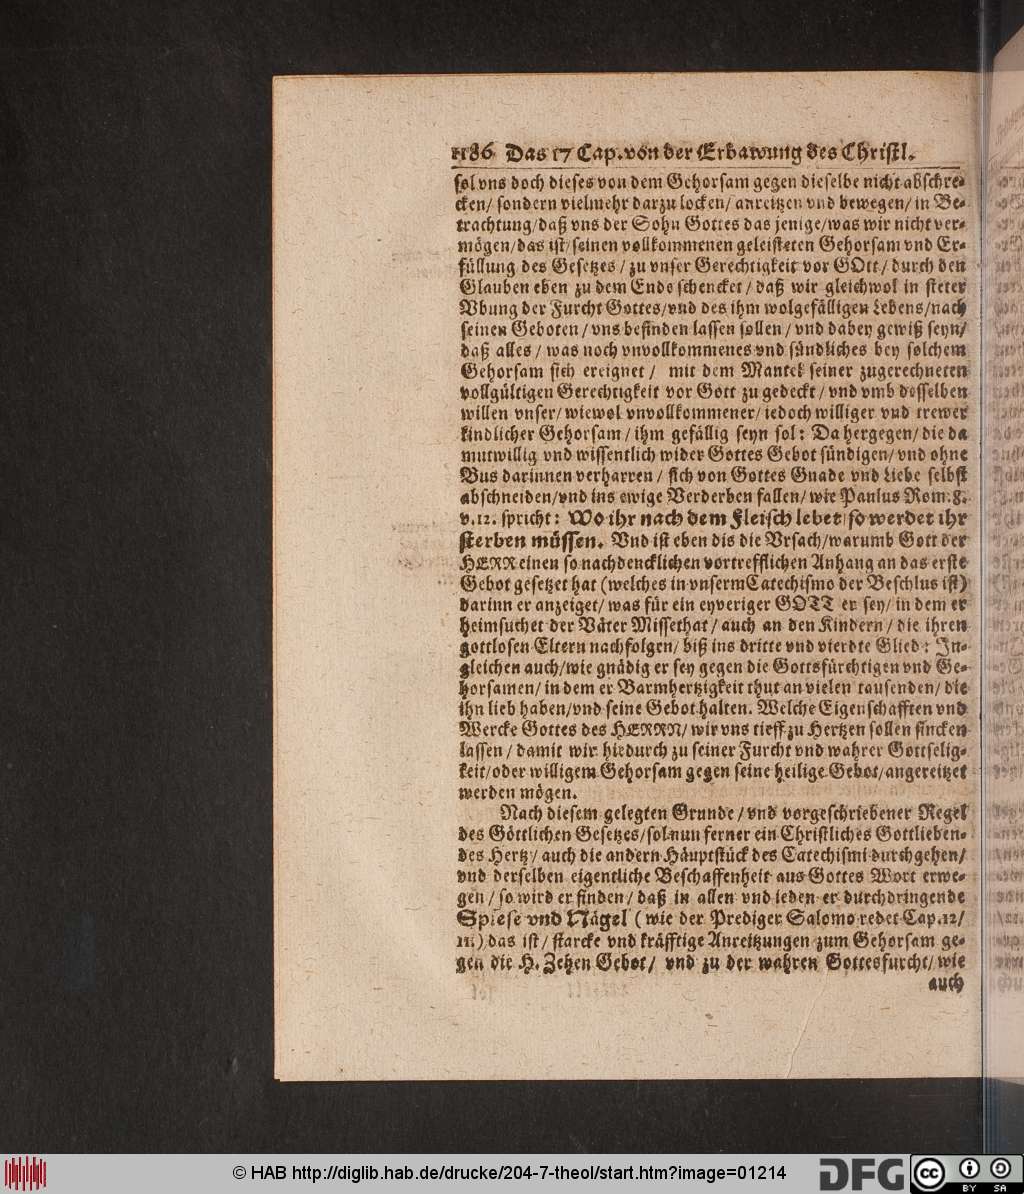 1186 Das 17 Cap. von der Erbawung des Christl.
sol vns doch dieses von dem Gehorsam gegen dieselbe nicht abschre-
cken/ sondern vielmehr darzu locken/ anreitzen vnd bewegen/ in Be-
trachtung/ daß vns der Sohn Gottes das jenige/ was wir nicht ver-
mögen/ das ist/ seinen vollkommenen geleisteten Gehorsam vnd Er-
füllung des Gesetzes / zu vnser Gerechtigkeit vor GOtt / durch den
Glauben eben zu dem Ende schencket / daß wir gleichwol in steter
Vbung der Furcht Gottes/ vnd des ihm wolgefälligen Lebens/ nach
seinen Geboten / vns befinden lassen sollen / vnd dabey gewiß seyn/
daß alles / was noch vnvollkommenes vnd sündliches bey solchem
Gehorsam sich ereignet / mit dem Mantel seiner zugerechneten
vollgültigen Gerechtigkeit vor Gott zu gedeckt / vnd vmb desselben
willen vnser/ wiewol vnvollkommener/ iedoch williger vnd trewer
kindlicher Gehorsam / ihm gefällig seyn sol: Da hergegen/ die da
mutwillig vnd wissentlich wider Gottes Gebot sündigen/ vnd ohne
Bus darinnen verharren / sich von Gottes Gnade vnd Liebe selbst
abschneiden/ vnd ins ewige Verderben fallen/ wie Paulus Rom. 8.
v. 12. spricht: Wo ihr nach dem Fleisch lebet/ so werdet ihr
sterben müssen. Vnd ist eben dis die Vrsach/ warumb Gott der
HERR einen so nachdencklichen vortrefflichen Anhang an das erste
Gebot gesetzet hat (welches in vnserm Catechismo der Beschlus ist)
darinn er anzeiget/ was für ein eyveriger GOTT er sey/ in dem er
heimsuchet der Väter Missethat / auch an den Kindern / die ihren
gottlosen Eltern nachfolgen/ biß ins dritte vnd vierdte Glied: In-
gleichen auch/ wie gnädig er sey gegen die Gottsfürchtigen vnd Ge-
horsamen/ in dem er Barmhertzigkeit thut an vielen tausenden/ die
ihn lieb haben/ vnd seine Gebot halten. Welche Eigenschafften vnd
Wercke Gottes des HERRN/ wir vns tieff zu Hertzen sollen sincken
lassen / damit wir hiedurch zu seiner Furcht vnd wahrer Gottselig-
keit/ oder willigem Gehorsam gegen seine heilige Gebot/ angereitzet
werden mögen.
Nach diesem gelegten Grunde / vnd vorgeschriebener Regel
des Göttlichen Gesetzes/ sol nun ferner ein Christliches Gottlieben-
des Hertz/ auch die andern Häuptstück des Catechismi durchgehen/
vnd derselben eigentliche Beschaffenheit aus Gottes Wort erwe-
gen / so wird er finden / daß in allen vnd ieden er durchdringende
Spiese vnd Nägel (wie der Prediger Salomo redet Cap. 12/
11.) das ist / starcke vnd kräfftige Anreitzungen zum Gehorsam ge-
gen die H. Zehen Gebot/ vnd zu der wahren Gottesfurcht/ wie
auch
© HAB http://diglib.hab.de/drucke/204-7-theol/start.htm?image=01214
DFG
cc
BY SA